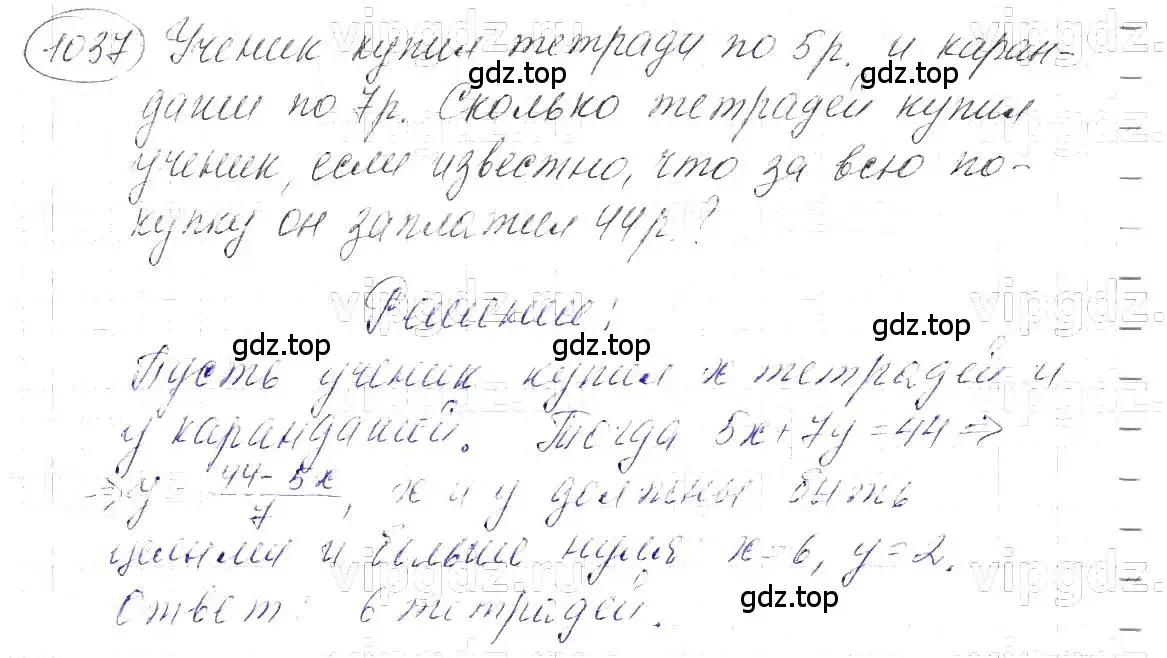 1037 Ученик купил тетради по 5р. и каран-
даши по 7р. Сколько тетрадей купил
ученик, если известно, что за всю по-
купку он заплатил 44р.?
Решение:
Пусть ученик купил x тетрадей и
y карандашей. Тогда 5x+7y=44 =>
=> y = (44-5x)/7, x и y должны быть
целыми и больше нуля: x=6, y=2.
Ответ: 6 тетрадей.
gdz.top
gdz.top
gdz.top
gdz.top
gdz.top
gdz.top
vipgdz.ru
vipgdz.ru
vipgdz.
vipgdz.ru
vipgdz.